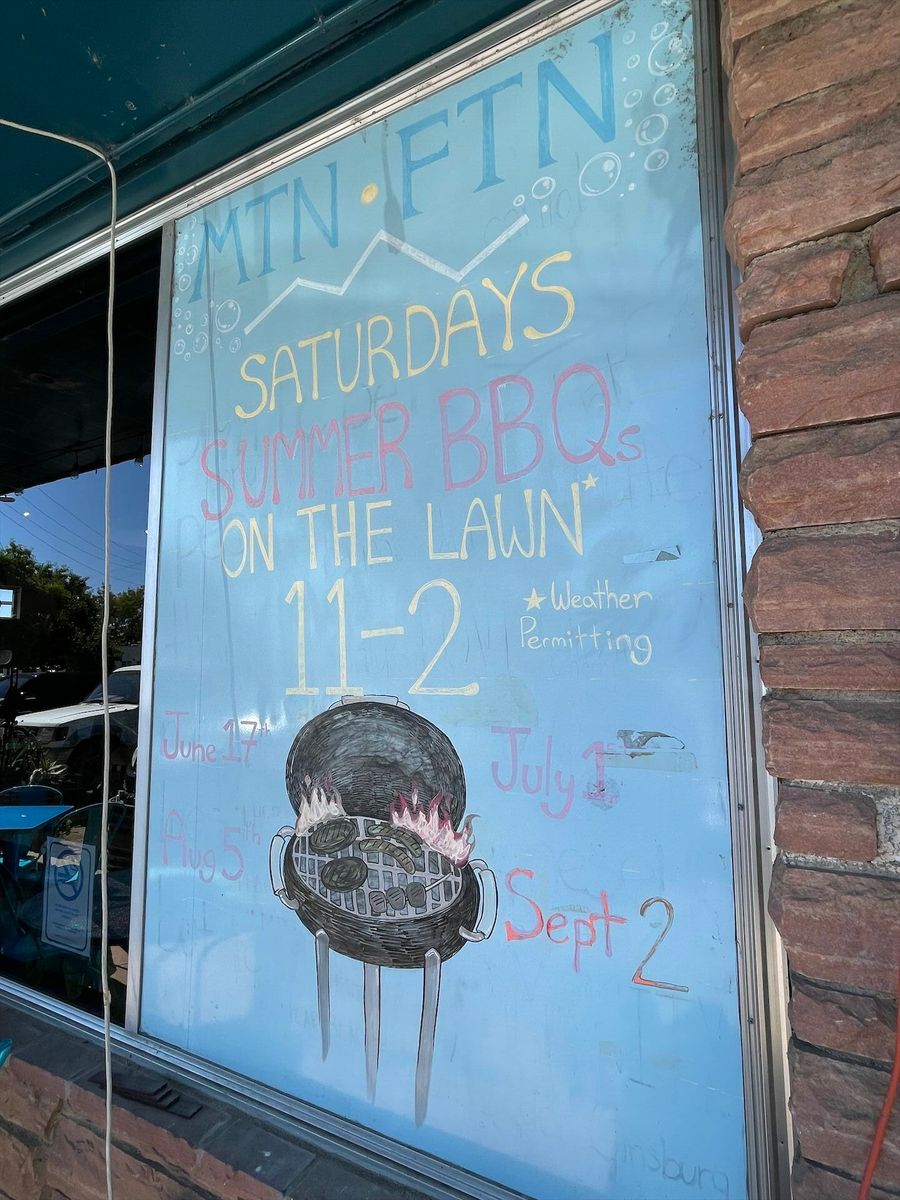 MTN • FTN
SATURDAYS
SUMMER BBQs
ON THE LAWN*
11-2
★ Weather
Permitting
June 17th
July 1st
Aug 5th
Sept 2